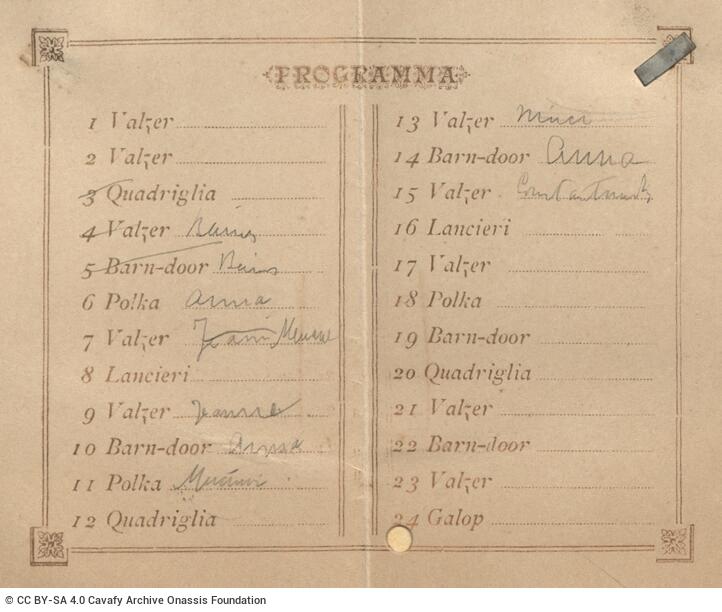 PROGRAMMA
1 Valzer
2 Valzer
3 Quadriglia
4 Valzer
5 Barn-door
6 Polka Anna
7 Valzer
8 Lancieri
9 Valzer Jeanne
10 Barn-door Anna
11 Polka
12 Quadriglia
13 Valzer
14 Barn-door Anna
15 Valzer
16 Lancieri
17 Valzer
18 Polka
19 Barn-door
20 Quadriglia
21 Valzer
22 Barn-door
23 Valzer
24 Galop
© CC BY-SA 4.0 Cavafy Archive Onassis Foundation